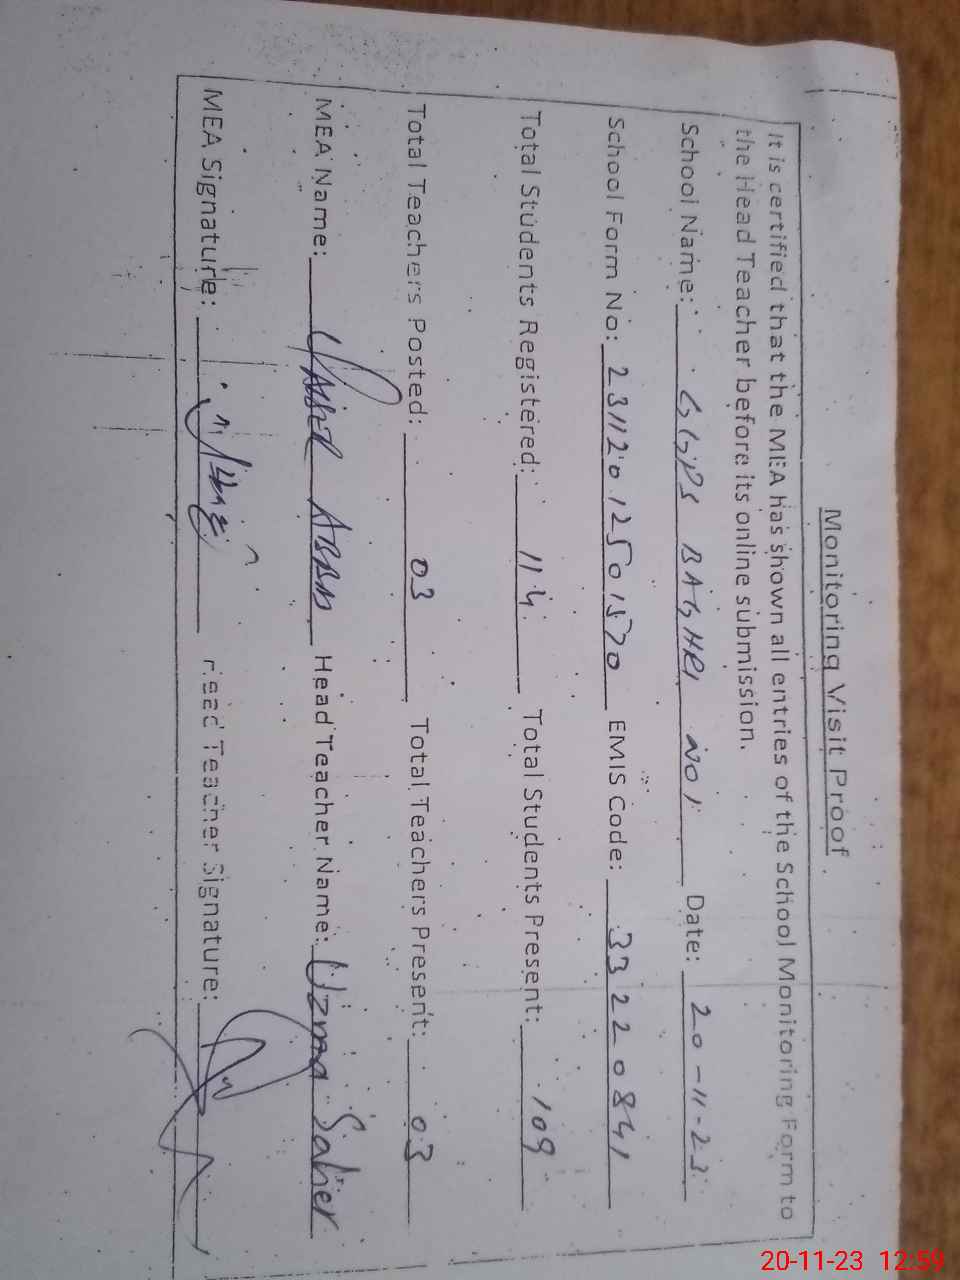 Monitoring Visit Proof
It is certified that the MEA has shown all entries of the School Monitoring Form to
the Head Teacher before its online submission.
School Name: GGPS BAGHRI NO1 Date: 20-11-23
School Form No: 23112012501570 EMIS Code: 33220841
Total Students Registered: 114 Total Students Present: 109
Total Teachers Posted: 03 Total Teachers Present: 03
MEA Name: Abbas Head Teacher Name: Uzma Saher
MEA Signature: Head Teacher Signature:
20-11-23 12:59